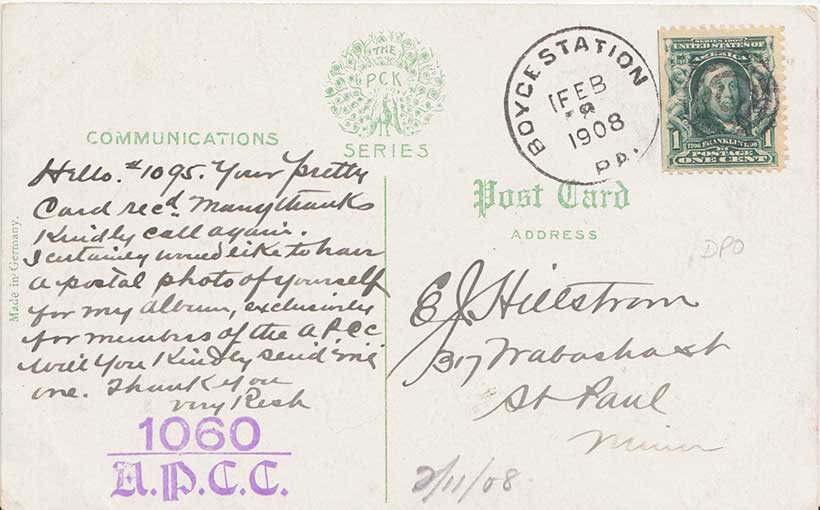 THE
PCK
SERIES
COMMUNICATIONS
Hello. #1095. Your pretty
Card rec'd. Many thanks
Kindly call again.
I certainly would like to have
a postal photo of yourself
for my album, exclusively
for members of the A.P.C.C.
Will You Kindly send me
one. Thank You
very Resp
1060
A.P.C.C.
Made in Germany.
BOYCE STATION
FEB
1908
PA.
SERIES 1902
UNITED STATES OF
AMERICA
1 FRANKLIN 1
POSTAGE
ONE CENT
Post Card
ADDRESS
DPO
E J Hillstrom
317 Wabasha st
St Paul
Minn
2/11/08